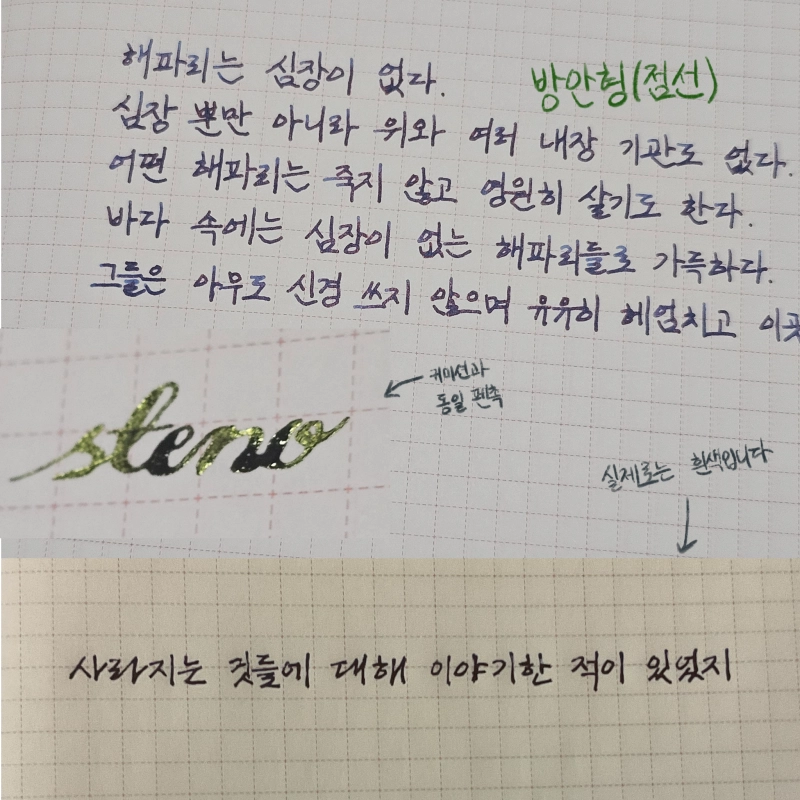 해파리는 심장이 없다.
방안형(점선)
심장 뿐만 아니라 위와 여러 내장 기관도 없다.
어떤 해파리는 죽지 않고 영원히 살기도 한다.
바다 속에는 심장이 없는 해파리들로 가득하다.
그들은 아무도 신경 쓰지 않으며 유유히 헤엄치고 이곳
steno
동일 펜촉
실제로는 흰색입니다
사라지는 것들에 대해 이야기한 적이 있었지